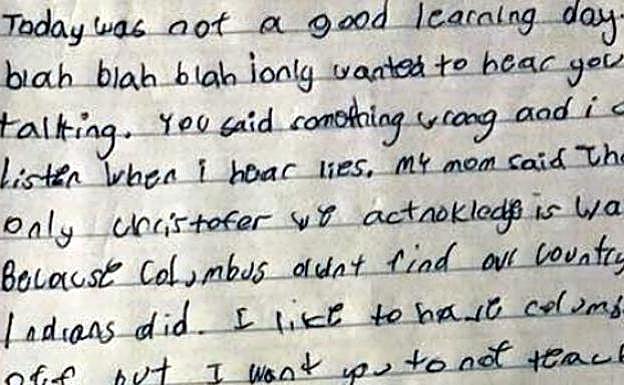 Today was not a good learning day.
blah blah blah i only wanted to hear you
talking. You said somothing wrong and i c
listen when i hear lies. My mom said The
only christofer we actnokledge is Wa
Because Columbus didnt find our country
Indians did. I like to have columb
off but I want you to not teach